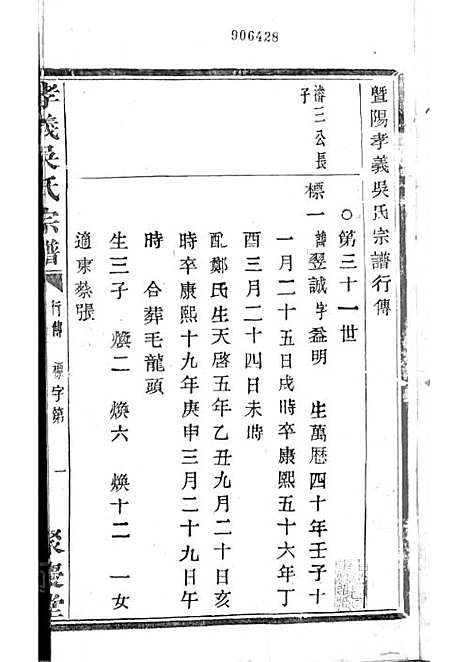 906428
暨陽孝義吳氏宗譜行傳
○第三十一世
濟三公長
子
標一諱翌誠字益明 生萬曆四十年壬子十
一月二十五日戌時卒康熙五十六年丁
酉三月二十四日未時
配鄭氏生天啓五年乙丑九月二十日亥
時卒康熙十九年庚申三月二十九日午
時 合葬毛龍頭
生三子 煥二 煥六 煥十二 一女
適東蔡張
孝義吳氏宗譜 行傳 標字第 一 聚慶堂